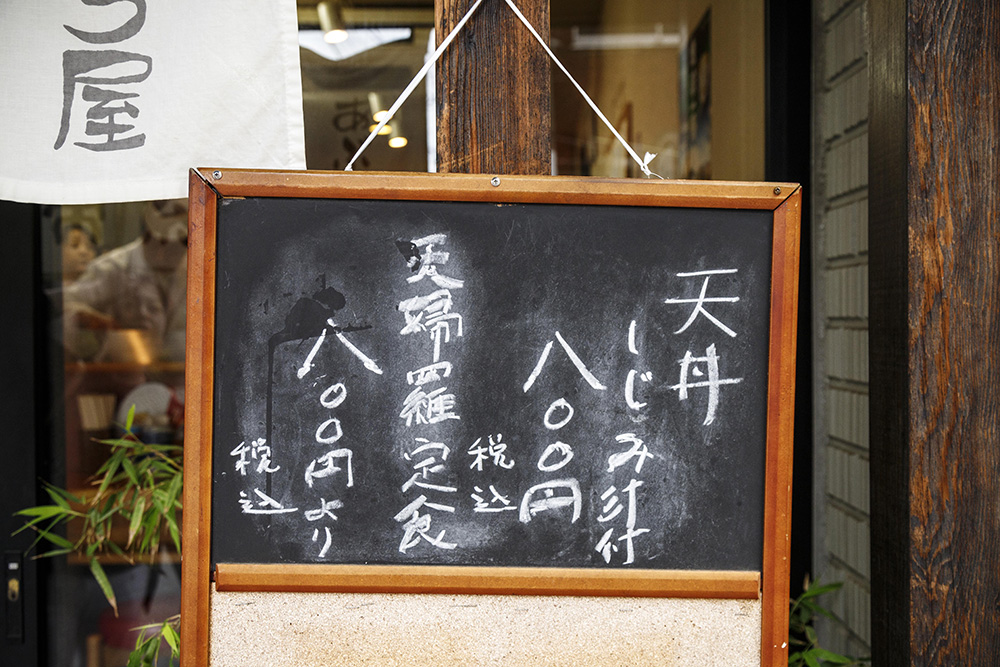 う屋
天丼
しじみ汁付
八〇〇円
税込
天婦羅定食
八〇〇円より
税込